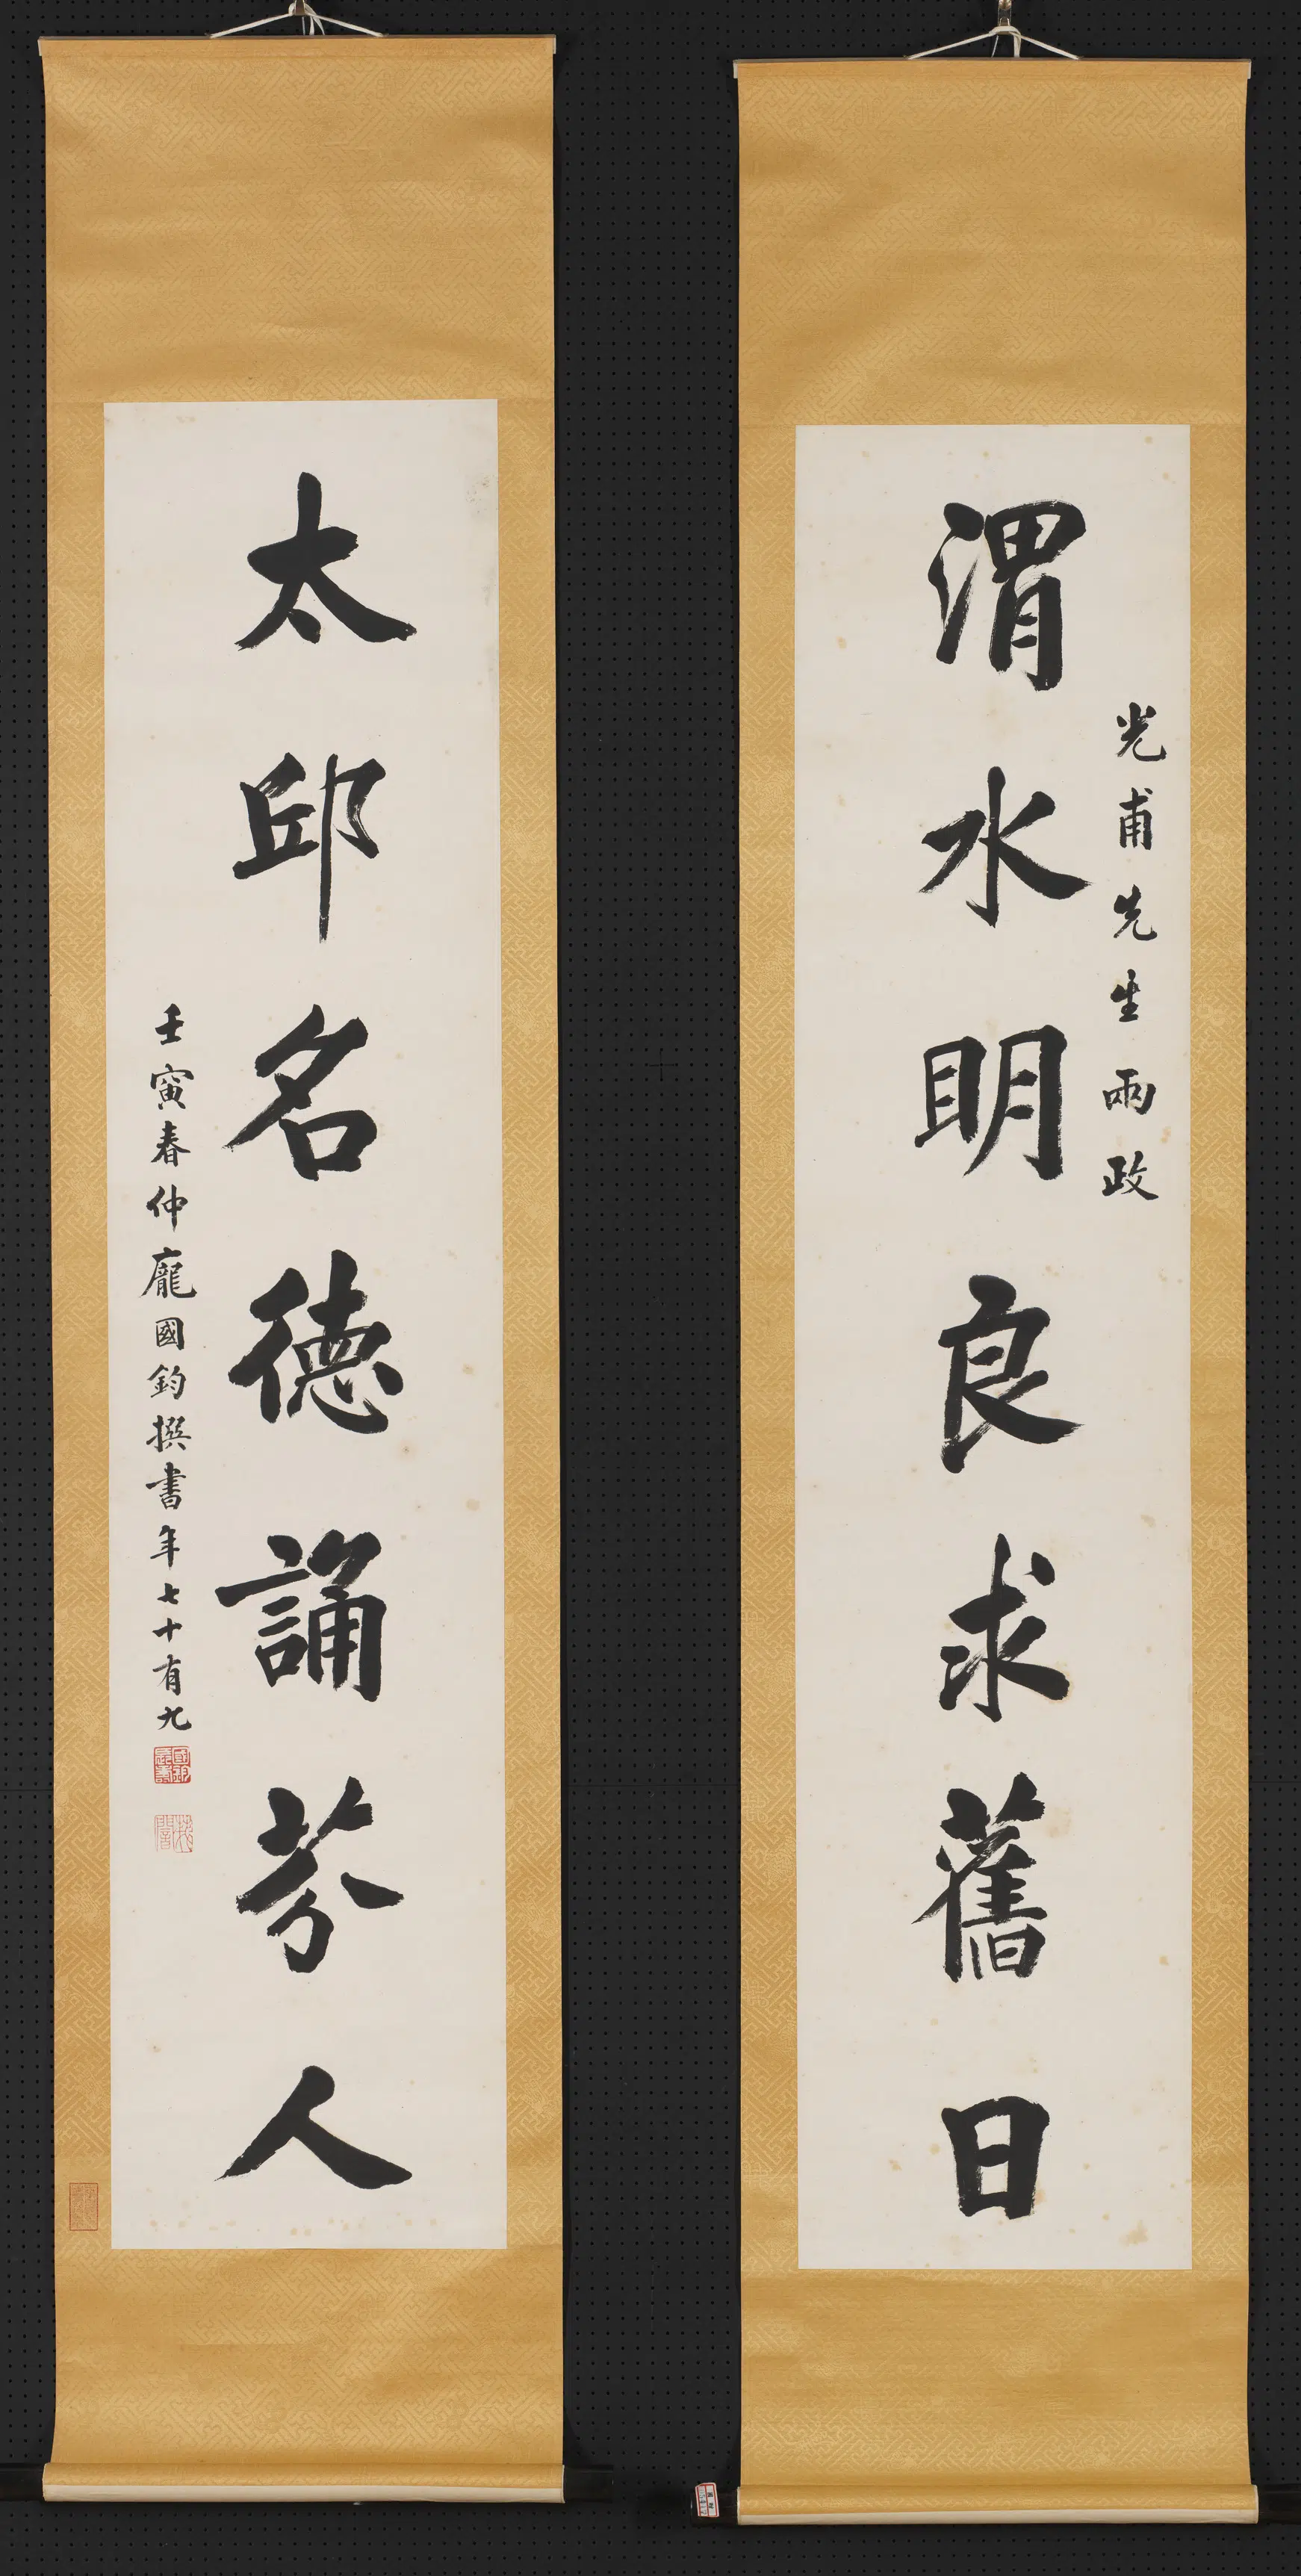 光甫先生兩政
渭水明良求舊日
太邱名德誦芬人
壬寅春仲龐國鈞撰書年七十有九